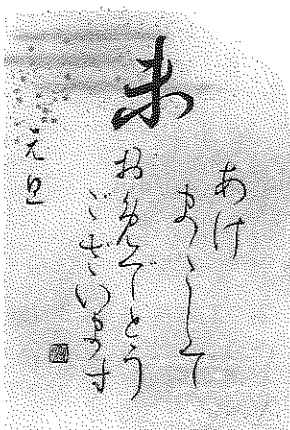 未
あけ
まして
おめでとう
ございます
元旦